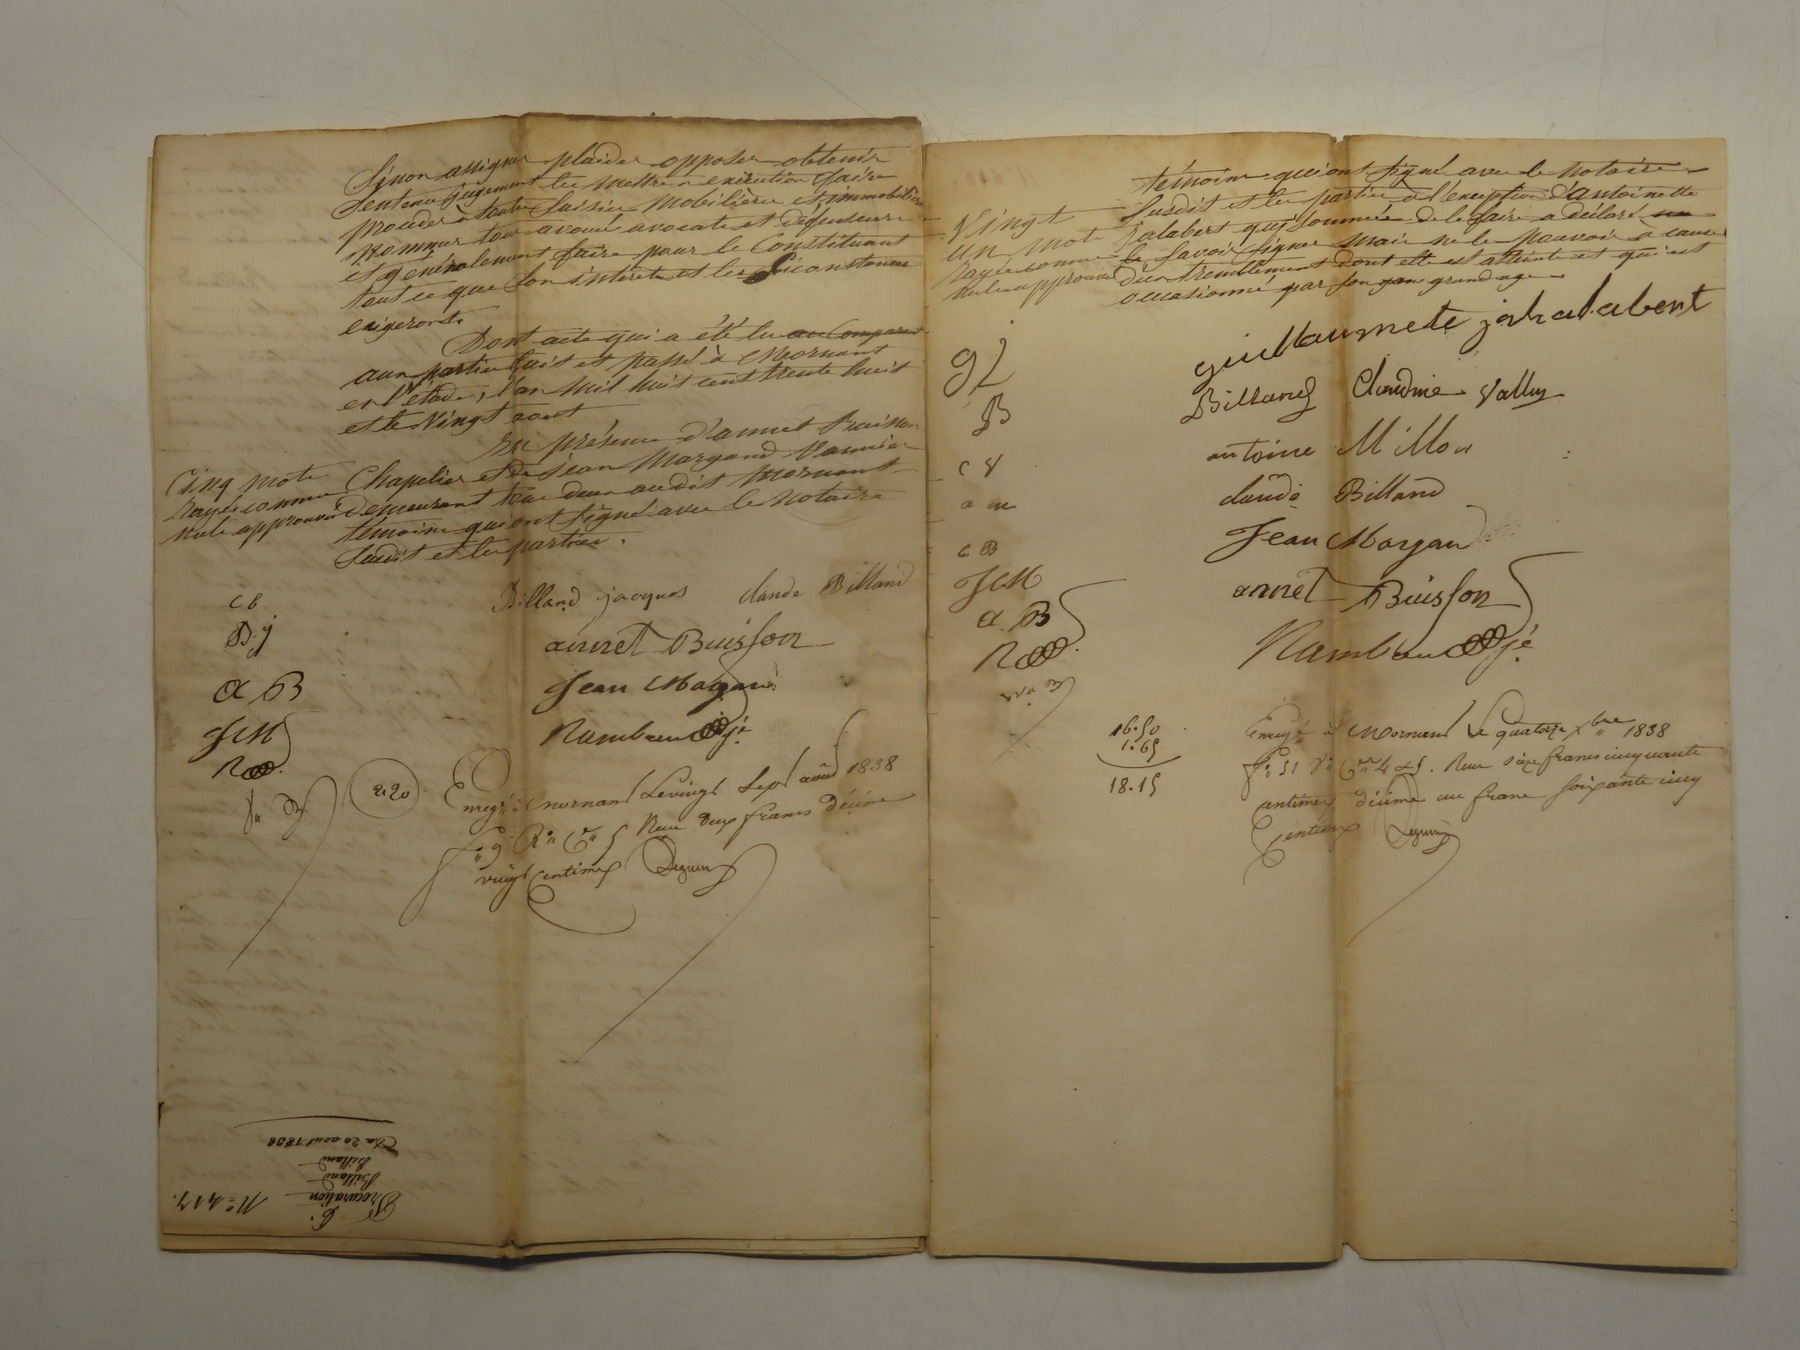 Sinon assigner plaider opposer obtenir
Sentence jugement les mettre a exécution faire
procéder à toutes saisies mobilières et immobilières
nommer tous avoués avocats et défenseurs
et généralement faire pour le Constituant
tout ce que son intérêts et les Circonstances
exigeront.
Dont acte qui a été lu au Comparant
aux parties fait et passé à Mornant
en l'étude, l'an mil huit cent trente huit
et le Vingt aout
En présence d'annet Buisson
Chapelier et de Jean Margand
demeurant tous deux audit Mornant
témoins qui ont signé avec le Notaire
susdit et les parties.
Cinq mots
Rayés comme
nuls approuvés
c b
B j
a B
J M
R
Billand jacques claude Billand
annet Buisson
Jean Magand
Rambaud jé
2.20
Enregé à mornant Le vingt Sept août 1838
fo 9 Ro Cer 5 Reçu deux francs décime
vingt Centimes
No 417.
Procuration
Billand
Billand
Du 20 aout 1838
témoins qui ont signé avec le Notaire
susdit et les parties à l'exception d'antoinette
jalabert qui sommée de le faire a déclaré
le savoir signer mais ne le pouvoir à cause
d'un tremblement dont elle est atteinte et qui est
occasionné par son grand age
Vingt
un mots
Rayés comme
nuls approuvés
g j
B
c v
a m
c B
J M
a B
R
guillaumete jahalabert
Billand Claudine Valluy
antoine Millon
claude Billand
Jean Morgan
annet Buisson
Rambaud jé
16.50
1.65
18.15
Enregé à Mornant Le quatorze xbre 1838
fo 51 Vo Cers 4 & 5. Reçu seize francs cinquante
centimes décime un franc soixante cinq
Centimes